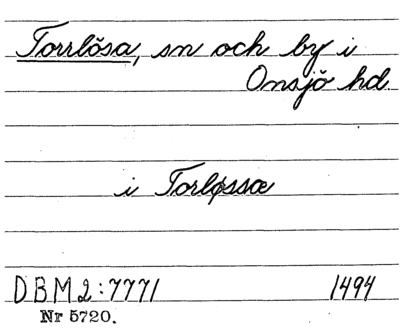 Torrlösa, sn och by i
Onsjö hd
i Torløssæ
DBM2:7771 1494
Nr 5720.